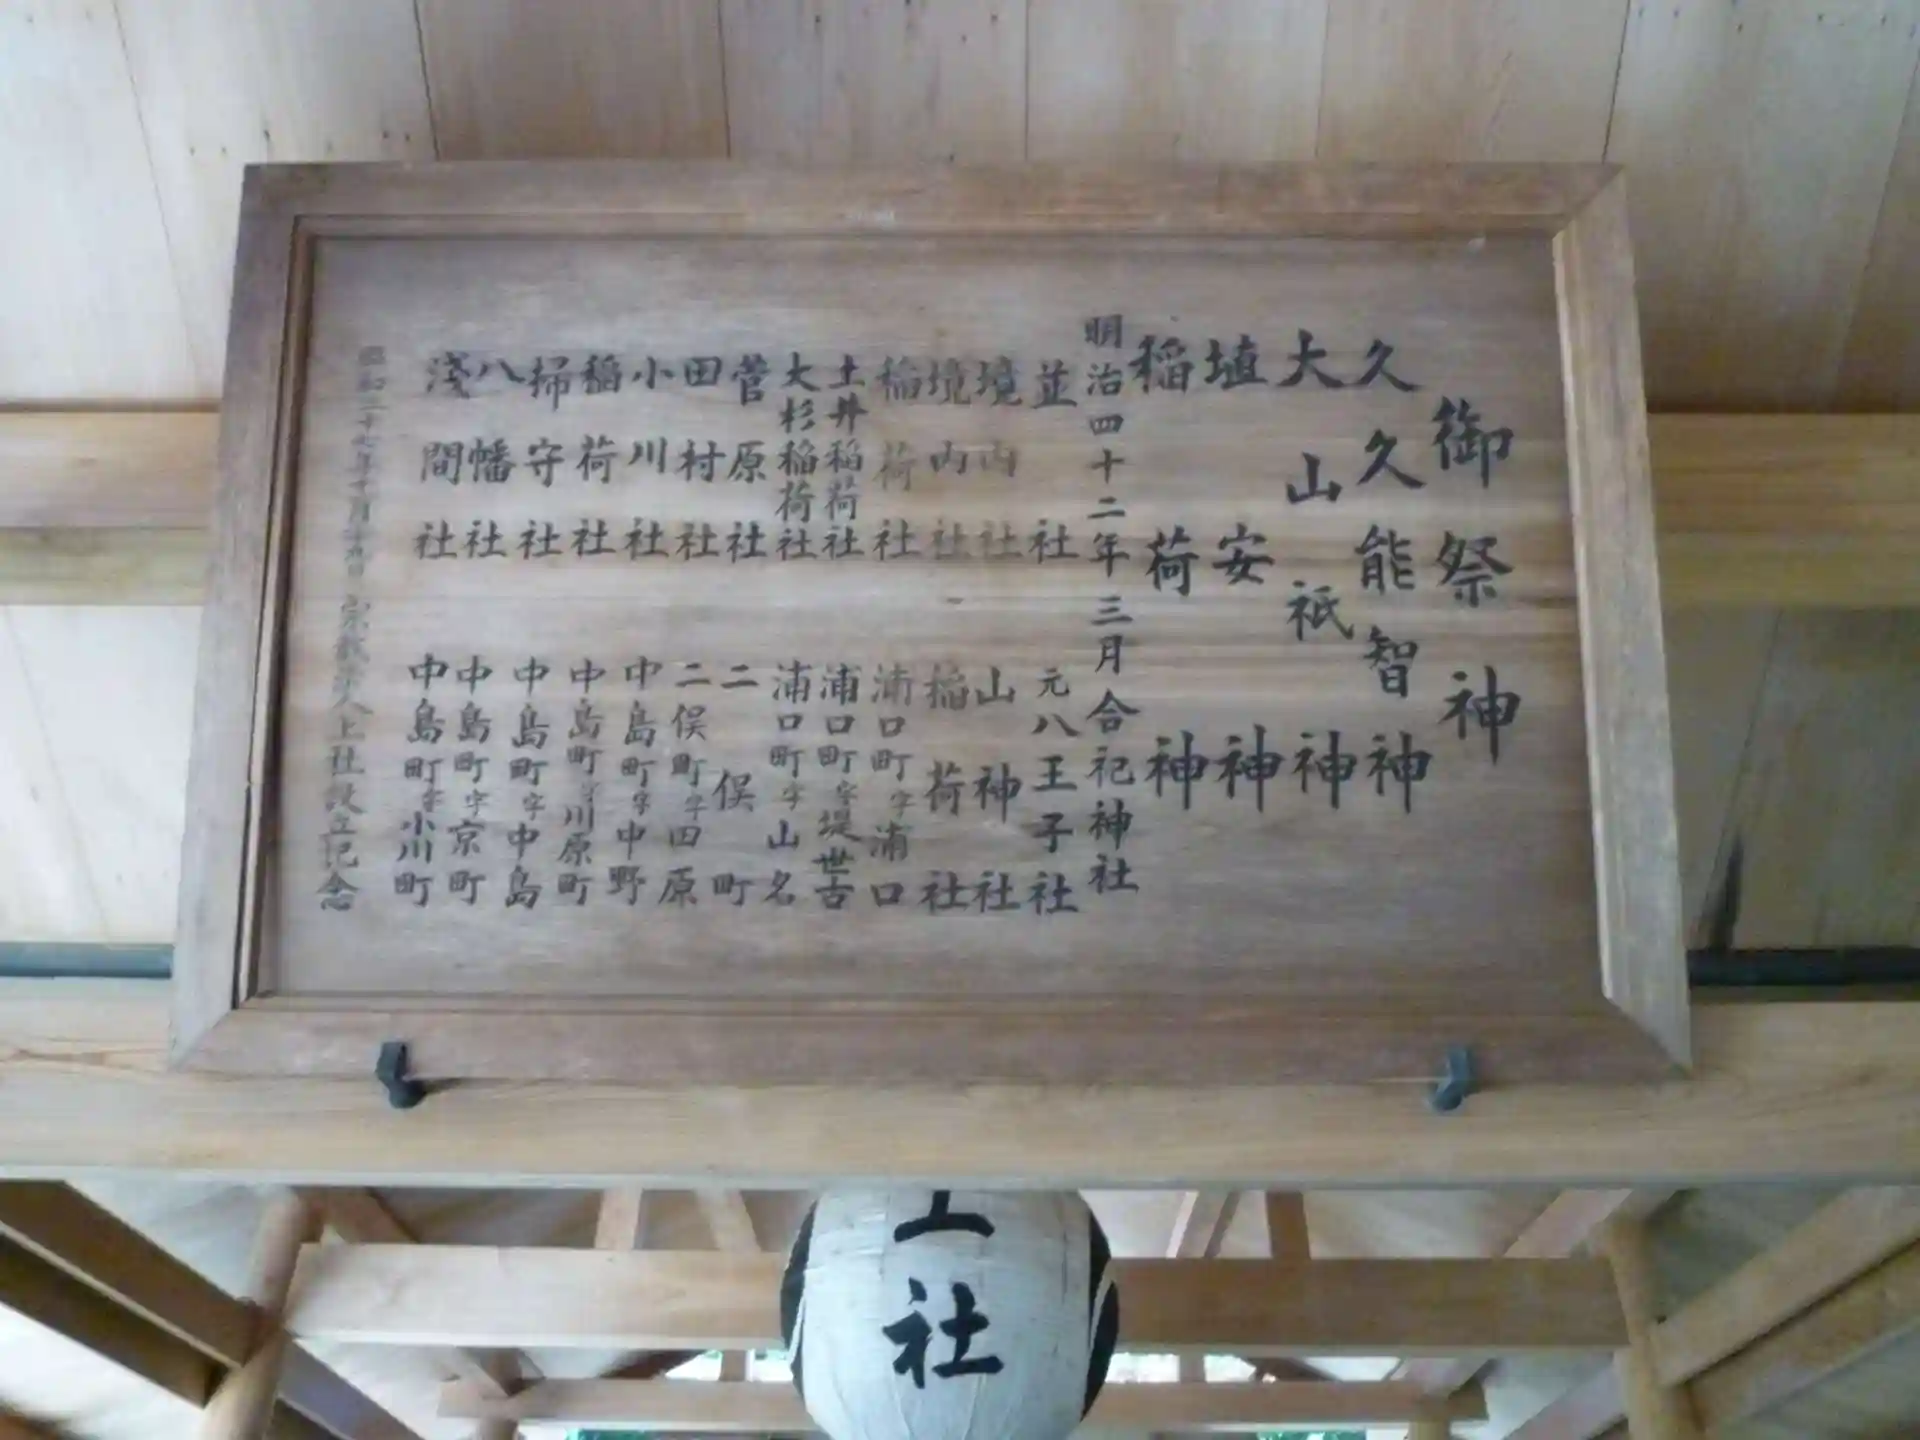 御祭神
久久能智神
大山祇神
埴安神
稲荷神
明治四十二年三月合祀神社
並社 元八王子社
境内社 山神社
境内社 稲荷社
稲荷社 浦口町字浦口
土井稲荷社 浦口町字堤世古
大杉稲荷社 浦口町字山名
菅原社 二俣町
田村社 二俣町字田原
小川社 中島町字中野
稲荷社 中島町字川原町
掃守社 中島町字中島
八幡社 中島町字京町
淺間社 中島町字小川町
昭和二十七年十月 宗教法人上社設立記念
上社